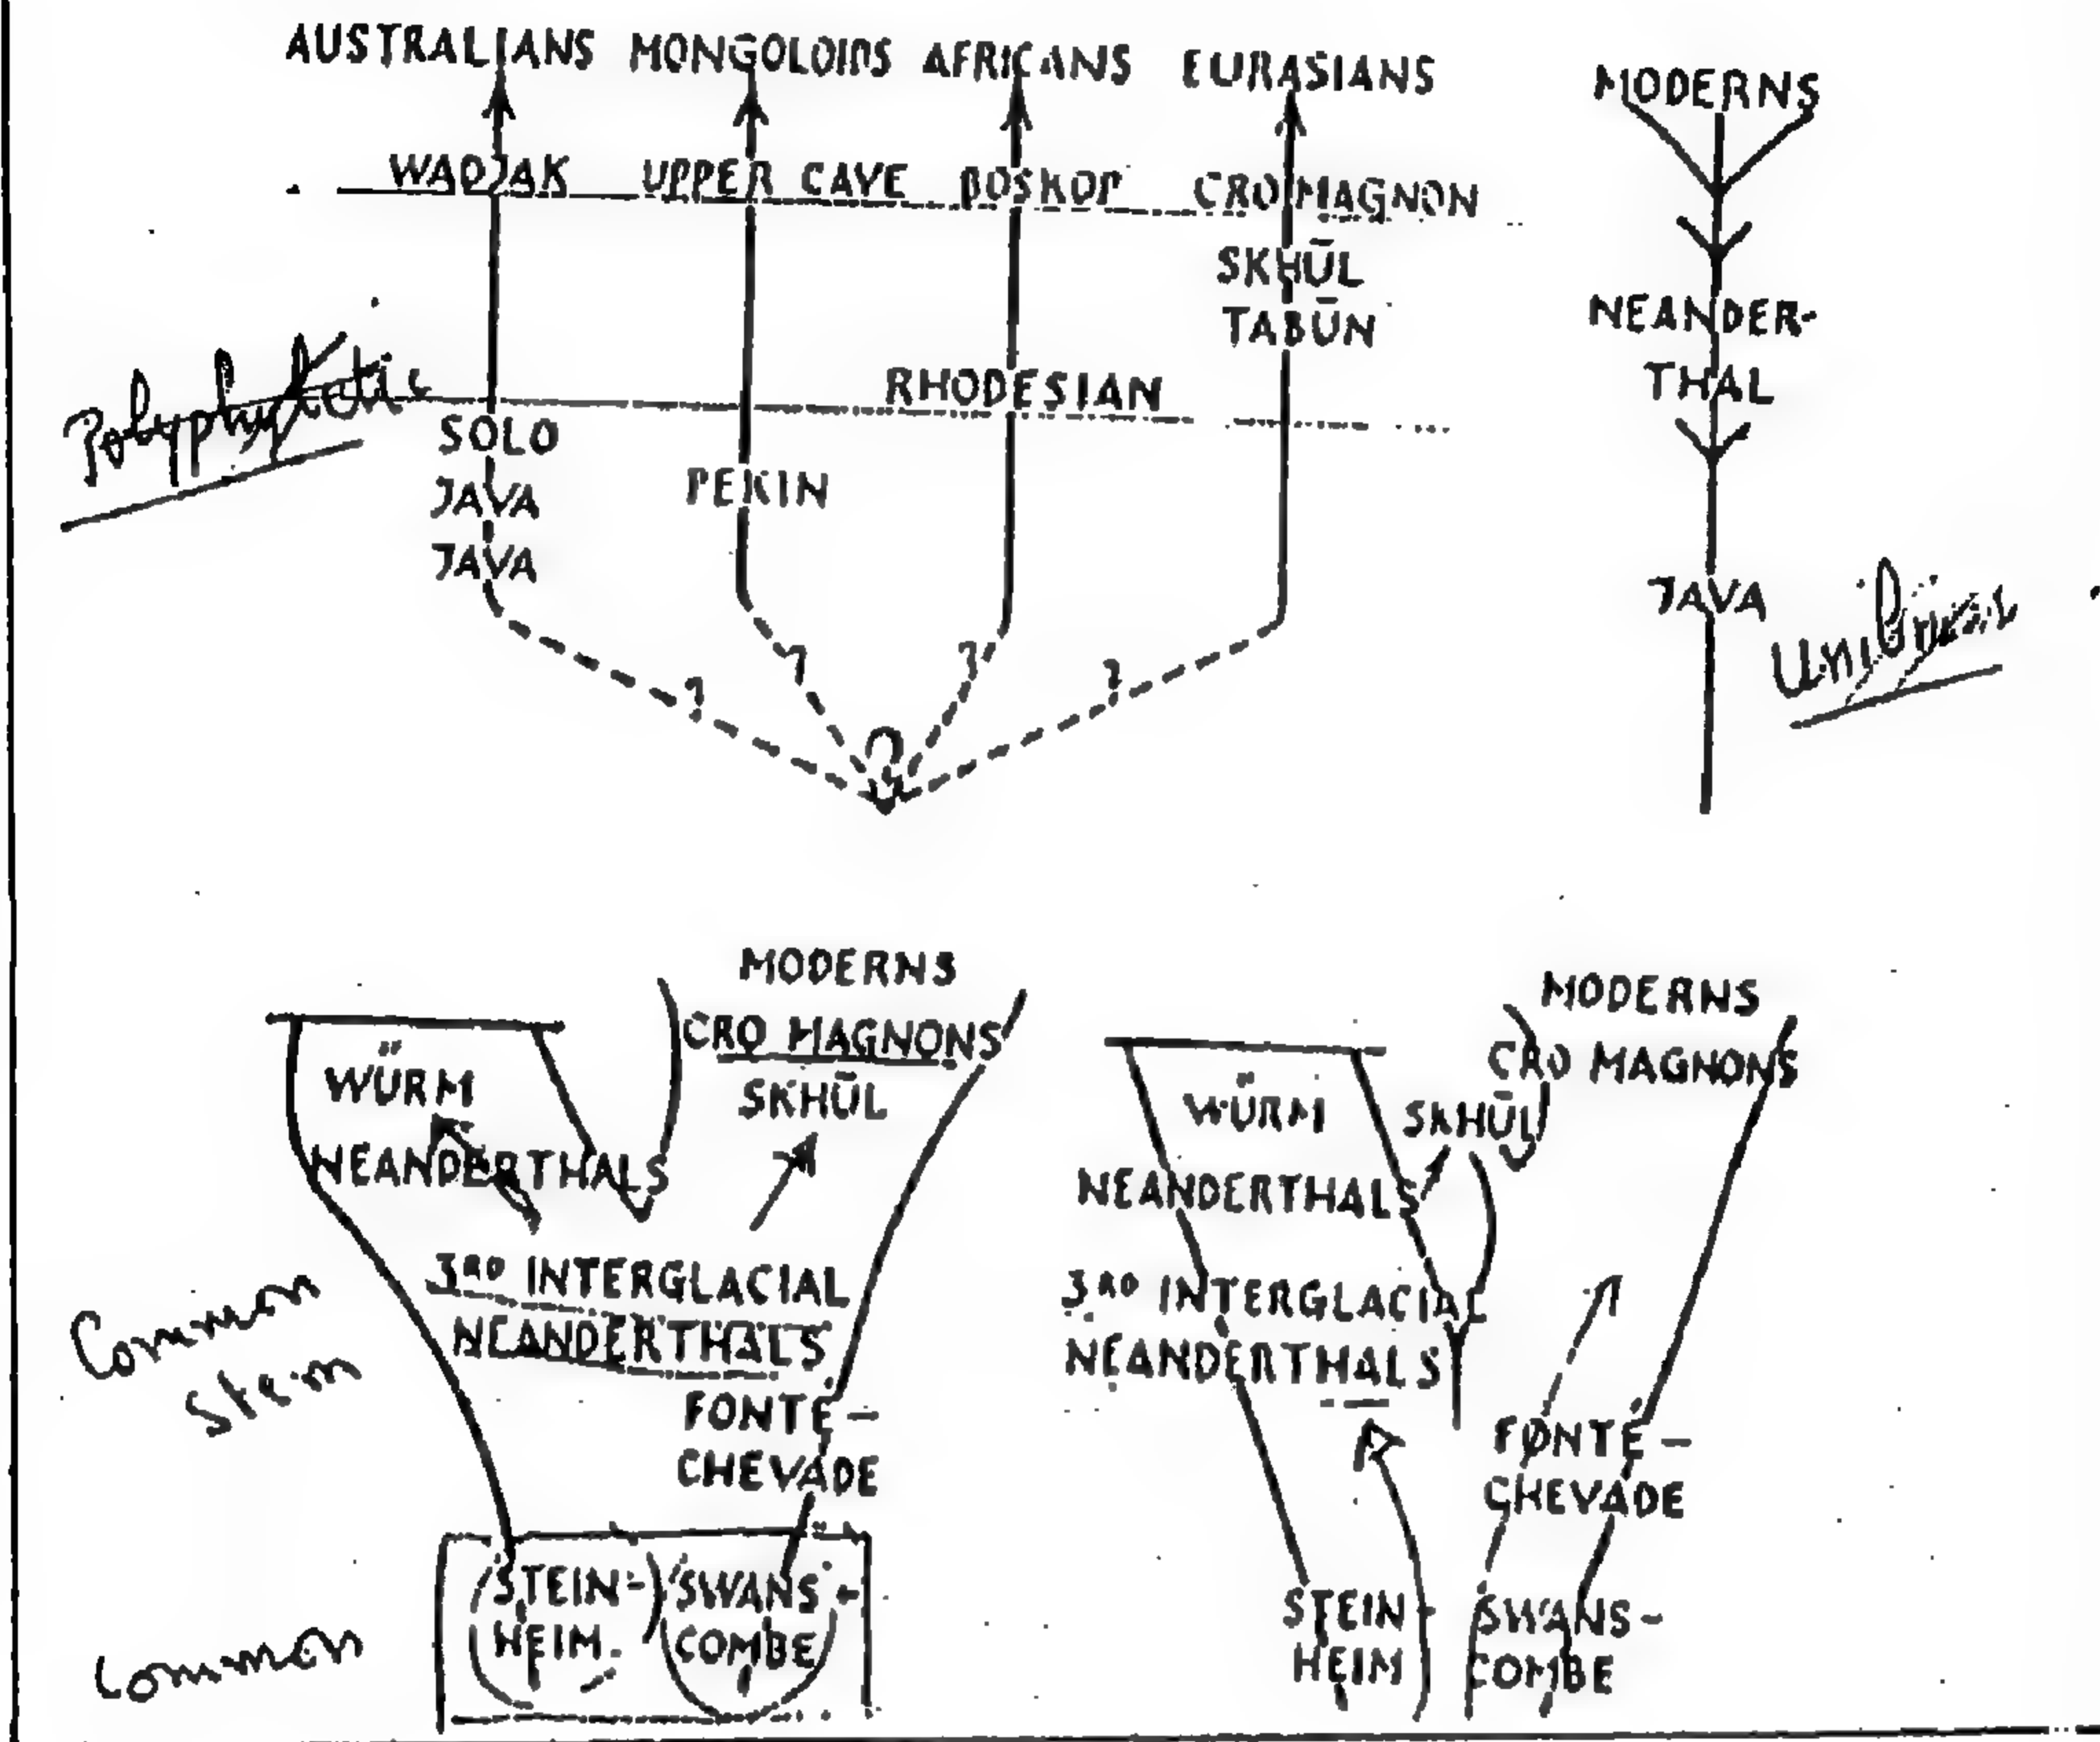 AUSTRALIANS MONGOLOIDS AFRICANS EURASIANS
WADJAK UPPER CAVE BOSKOP CRO MAGNON
SKHŪL
TABŪN
RHODESIAN
SOLO
JAVA
PEKIN
JAVA
? ? ? ?
?
Polyphyletic
MODERNS
NEANDER-
THAL
JAVA
MODERNS
CRO MAGNONS
SKHŪL
WÜRM
NEANDERTHALS
3RD INTERGLACIAL
NEANDERTHALS
FONTÉ-
CHEVADE
STEIN-
HEIM
SWANS-
COMBE
Common
Stem
Common
MODERNS
CRO MAGNONS
SKHŪL
WÜRM
NEANDERTHALS
3RD INTERGLACIAL
NEANDERTHALS
FONTÉ-
CHEVADE
STEIN-
HEIM
SWANS-
COMBE